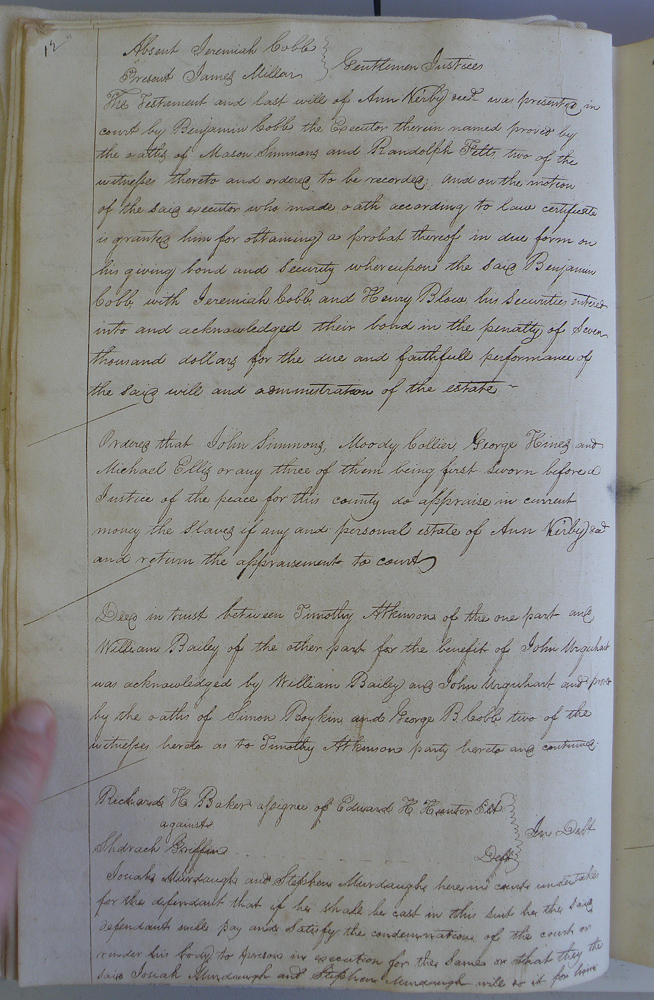 12
Absent Jeremiah Cobb
Present James Millar } Gentlemen Justices
The Testament and last will of Ann Kirby decd was presented in
court by Benjamin Cobb the Executor therein named proved by
the oaths of Mason Simmons and Randolph Fitts two of the
witnesses thereto and ordered to be recorded, and on the motion
of the said executor who made oath according to law certificate
is granted him for obtaining a probat thereof in due form on
his giving bond and Security whereupon the said Benjamin
Cobb with Jeremiah Cobb and Henry Blow his Securities entered
into and acknowledged their bond in the penalty of Seven
thousand dollars for the due and faithfull performance of
the said will and administration of the estate
Ordered that John Simmons, Moody Collier, George Hines and
Michael Ellis or any three of them being first sworn before a
Justice of the peace for this county do appraise in current
money the Slaves if any and personal estate of Ann Kirby decd
and return the appraisement to court
Deed in trust between Timothy Atkinson of the one part and
William Bailey of the other part for the benefit of John Urquhart
was acknowledged by William Bailey and John Urquhart and
by the oaths of Simon Boykin and George B. Cobb two of the
witnesses hereto as to Timothy Atkinsons party hereto and continued
Richard H Baker assignee of Edward H Hunter Plt
against } In Debt
Shdrach Griffin Deft
Josiah Murdaugh and Stephen Murdaugh here in court undertake
for the defendant that if he shall be cast in this suit he the said
defendant will pay and Satisfy the condemnation of the court or
render his body to prison in execution for the same or that they the
said Josiah Murdaugh and Stephen Murdaugh will do it for him